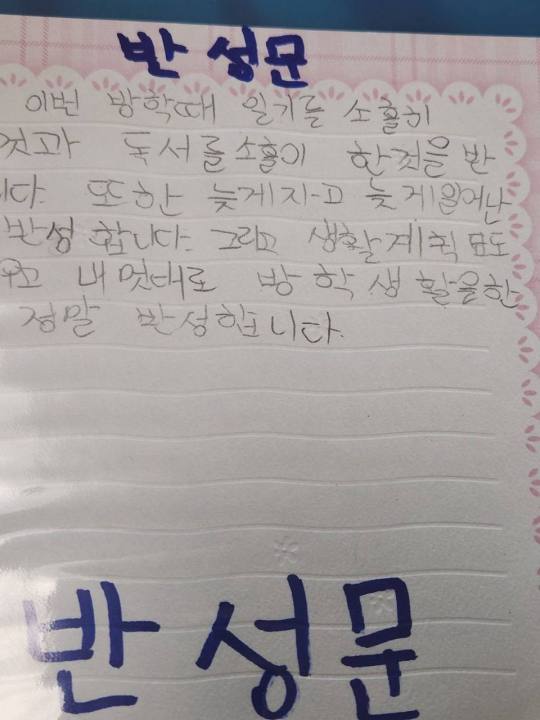 반성문
이번 방학때 일기를 소홀히
것과 독서를 소홀이 한것을 반
니다. 또한 늦게자고 늦게일어난
반성합니다. 그리고 생활계획표도
내멋대로 방학생활을한
정말 반성합니다.
반성문